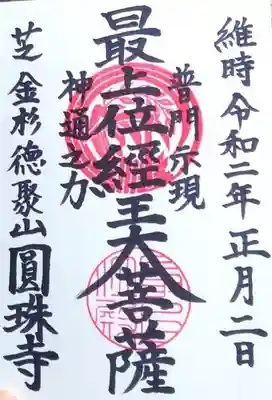 維時令和二年正月二日
普門示現
最上位經王大菩薩
神通之力
芝金杉徳聚山圓珠寺